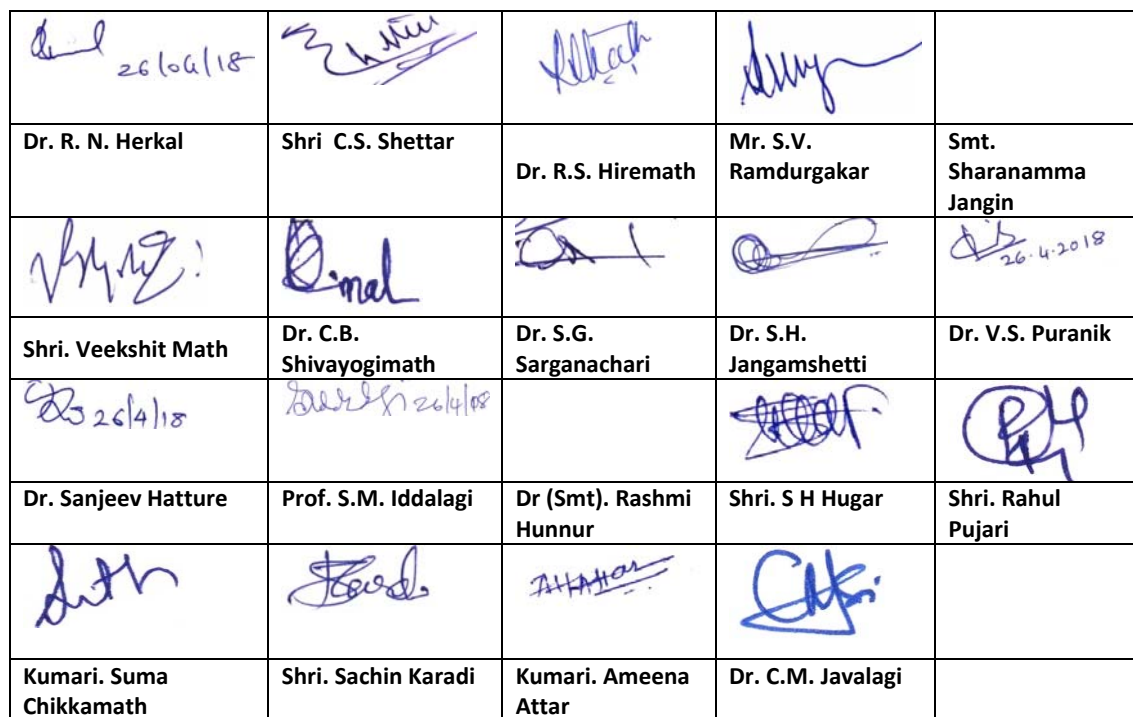 26/04/18
Dr. R. N. Herkal
Shri C.S. Shettar
Dr. R.S. Hiremath
Mr. S.V.
Ramdurgakar
Smt.
Sharanamma
Jangin
26.4.2018
Shri. Veekshit Math
Dr. C.B.
Shivayogimath
Dr. S.G.
Sarganachari
Dr. S.H.
Jangamshetti
Dr. V.S. Puranik
26/4/18
Dr. Sanjeev Hatture
Prof. S.M. Iddalagi
Dr (Smt). Rashmi
Hunnur
Shri. S H Hugar
Shri. Rahul
Pujari
Kumari. Suma
Chikkamath
Shri. Sachin Karadi
Kumari. Ameena
Attar
Dr. C.M. Javalagi